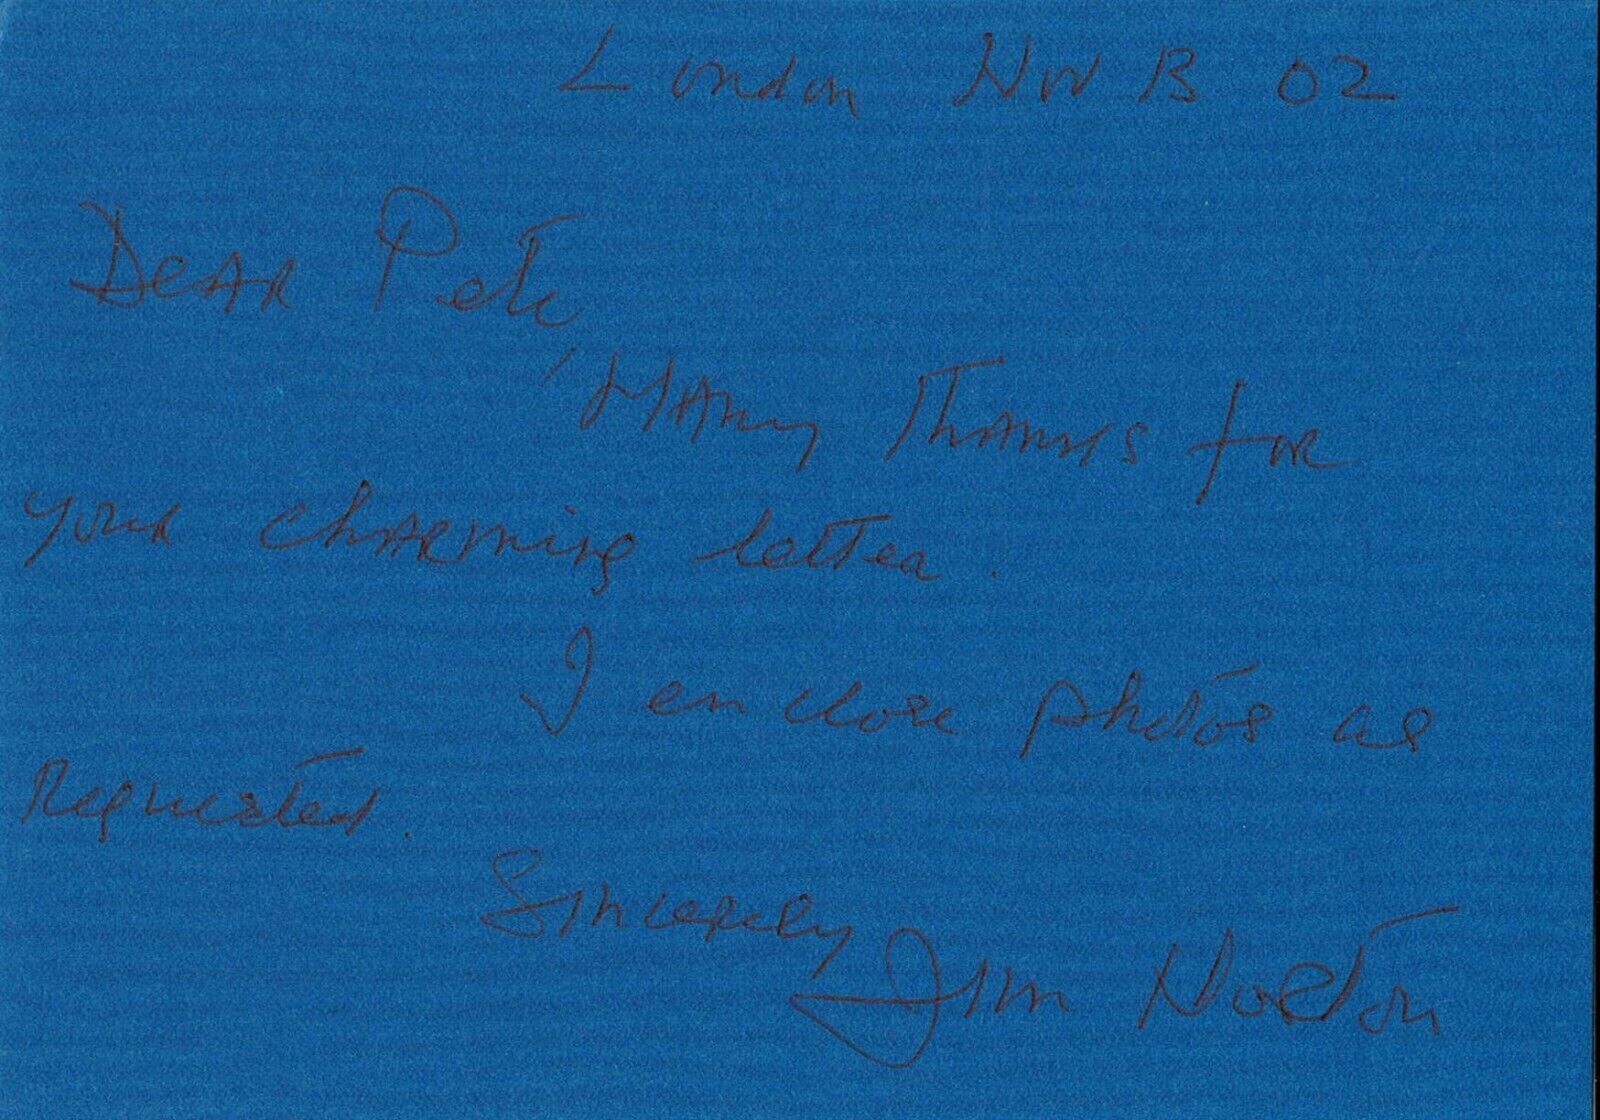 London Nov 13 02
Dear Pete
Many thanks for
your charming letter.
I enclose photos as
requested.
Sincerely
Jim Norton